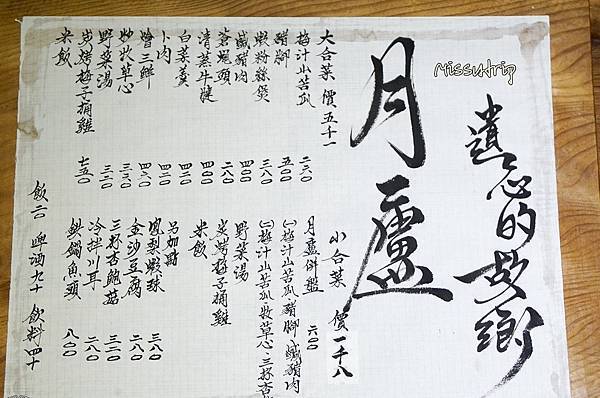 MissUtrip
遺心的故鄉
月廬
大合菜 價五千一
梅汁山苦瓜 二六〇
豬腳 五〇〇
蝦粉絲煲 三八〇
鹹豬肉 四〇〇
蒼蠅頭 二八〇
清蒸牛腱 四〇〇
白菜羹
卜肉
燴三鮮 四六〇
炒牧草心 二二〇
野菜湯 三二〇
炭烤梅子桶雞 七五〇
米飯
小合菜 價一千八
月廬併盤 六〇〇
㈠梅汁山苦瓜.豬腳.鹹豬肉
㈡梅汁山苦瓜.牧草心.三杯杏
野菜湯
炭烤梅子桶雞
米飯
另加點
鳳梨蝦球 三八〇
金沙豆腐 二八〇
三杯杏鮑菇 三二〇
冷拌川耳 二八〇
鐵鍋魚頭 八〇〇
飯二〇 啤酒九十 飲料四十